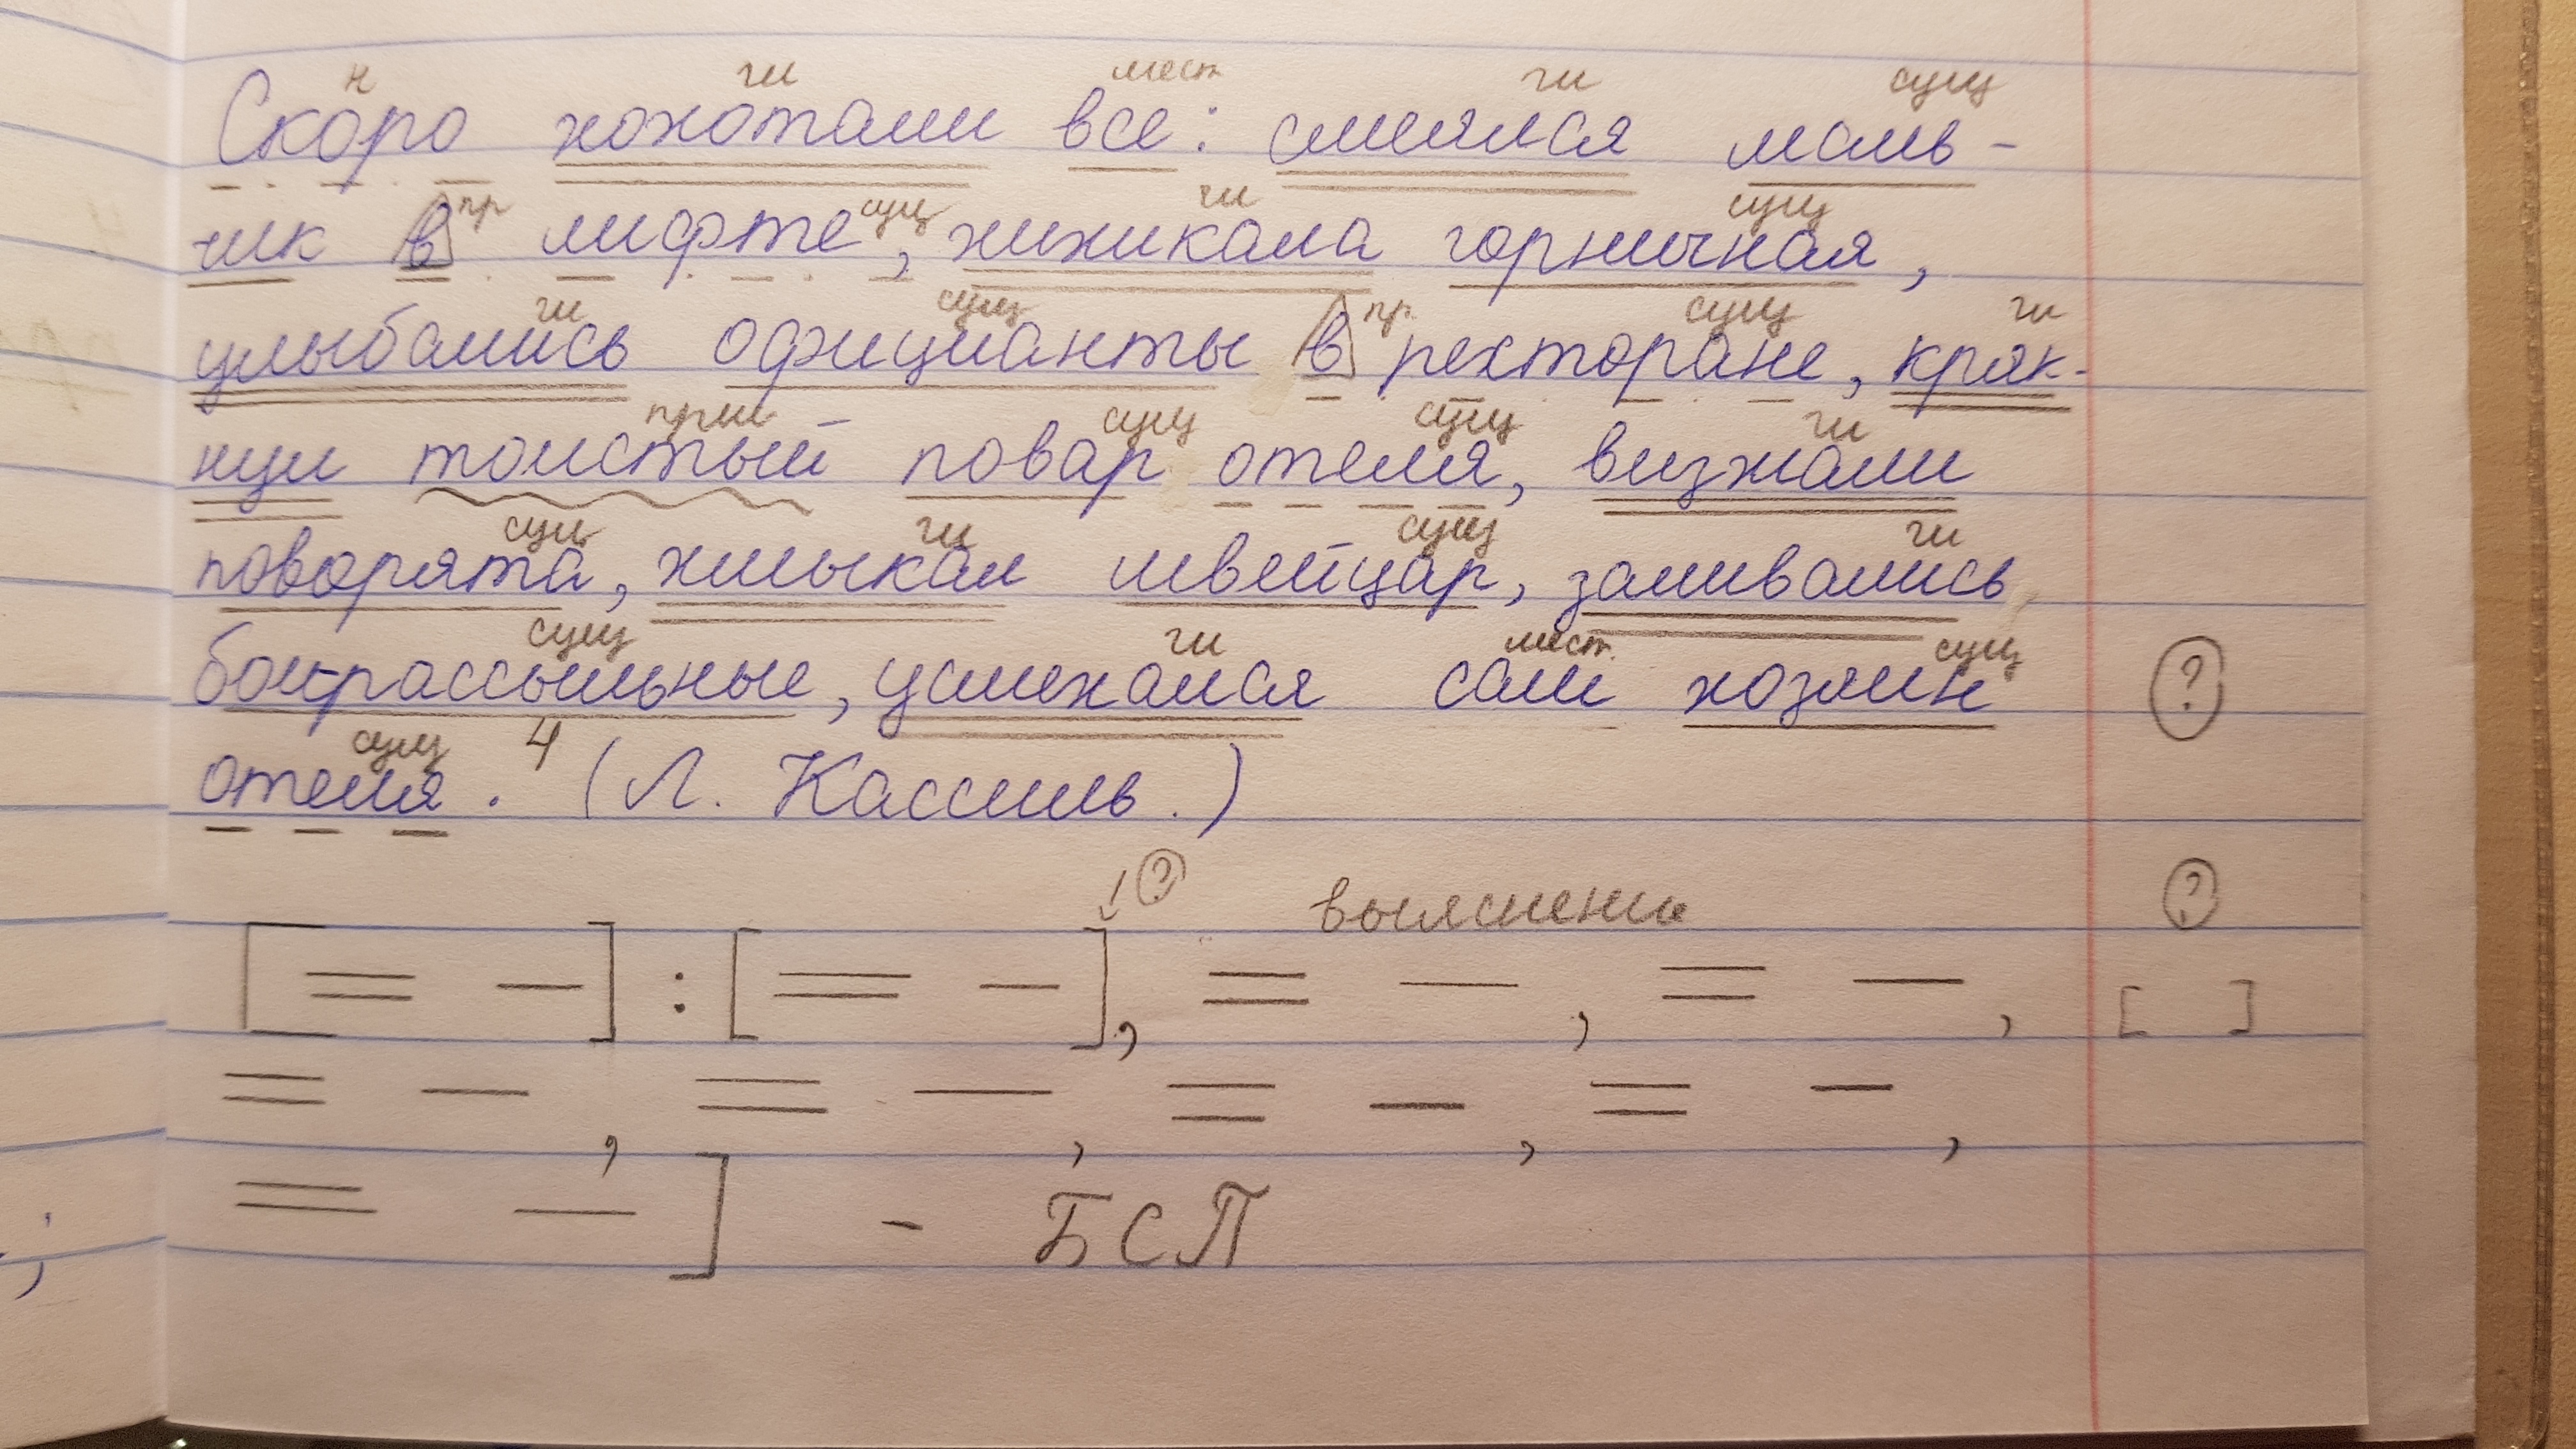 н гл мест гл сущ
Скоро хохотали все: смеялся маль-
пр сущ гл сущ
чик в лифте, хихикала горничная,
гл сущ пр. сущ гл
улыбались официанты в ресторане, кряк-
прил сущ сущ гл
нул толстый повар отеля, визжали
сущ гл сущ гл
поворята, хмыкал швейцар, заливались
сущ гл мест. сущ
бои-рассыльные, усмехался сам хозяин ?
сущ 4
отеля. (Л. Кассиль.)
? выяснение ?
[ = – ] : [ = – ], = – , = – , [ ]
= – , = – , = – , = – ,
= – ] - БСП